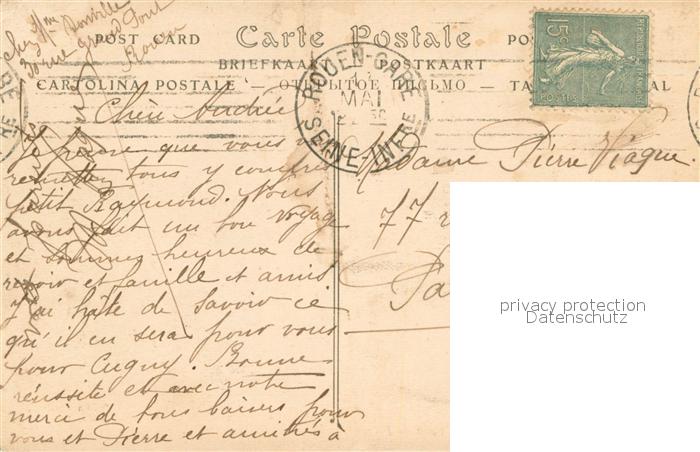 chez Mme Donville
30 rue grand Pont
Rouen
POST CARD Carte Postale PO
BRIEFKAART POSTKAART
CARTOLINA POSTALE — ОТКРЫТОЕ ПИСЬМО — TA AL
15c
POSTES
ROUEN-GARE
MAI
SEINE-INFRE
RE
Chère Andrée
Je pense que vous v
remettez tous y compris
petit Raymond. Nous
avons fait un bon voyage
et sommes heureux de
revoir et famille et amis
J'ai hâte de savoir ce
qu'il en sera pour vous
pour Cugny. Bonne
réussite et avec notre
merci de tous baisers pour
vous et Pierre et amitiés à
Madame Pierre Viaque
77
Pa
privacy protection
Datenschutz